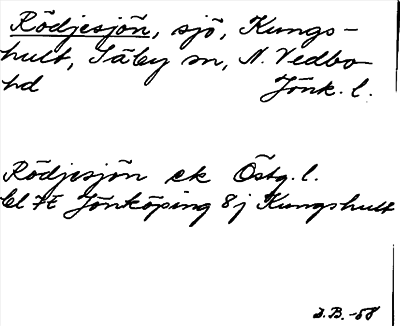 Rödjesjön, sjö, Kungs-
hult, Säby sn, N. Vedbo
hd Jönk. l.
Rödjesjön ek Östg. l.
bl 7E Jönköping 8j Kungshult
J.B.-58